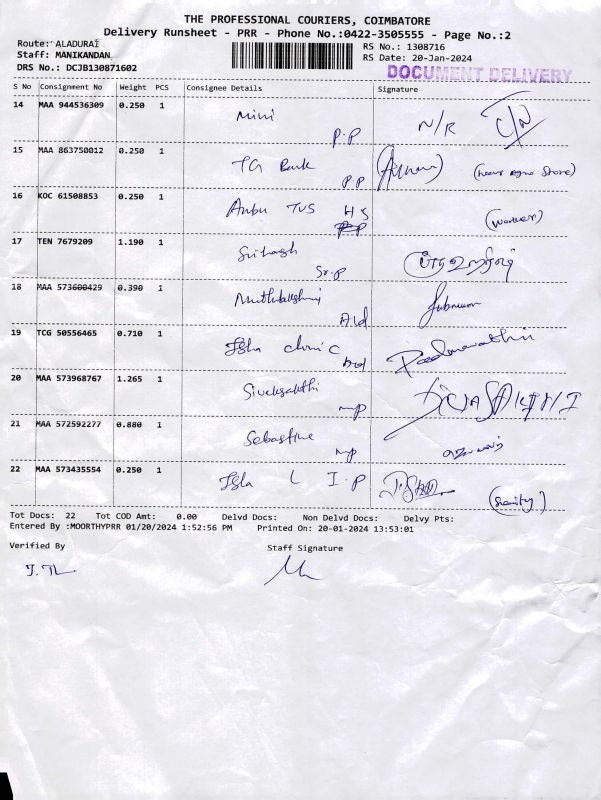 THE PROFESSIONAL COURIERS, COIMBATORE
Delivery Runsheet - PRR - Phone No.:0422-3505555 - Page No.:2
Route: ALADURAI RS No.: 1308716
Staff: MANIKANDAN RS Date: 20-Jan-2024
DRS No.: DCJB130871602 DOCUMENT DELIVERY
S No Consignment No Weight PCS Consignee Details Signature
14 MAA 944536309 0.250 1 Mini P.P N/R C/N
15 MAA 863750012 0.250 1 TG Bank P P
16 KOC 61508853 0.250 1 Anbu TVS H S (worker)
17 TEN 7679209 1.190 1 Sr.p
18 MAA 573600429 0.390 1 Muthulakshmi Ald
19 TCG 50556465 0.710 1 Isha clinic
20 MAA 573968767 1.265 1 Sivasakthi mp
21 MAA 572592277 0.880 1 Sebastine mp
22 MAA 573435554 0.250 1 Isha L I.P
Tot Docs: 22 Tot COD Amt: 0.00 Delvd Docs: Non Delvd Docs: Delvy Pts:
Entered By :MOORTHYPRR 01/20/2024 1:52:56 PM Printed On: 20-01-2024 13:53:01
Verified By Staff Signature